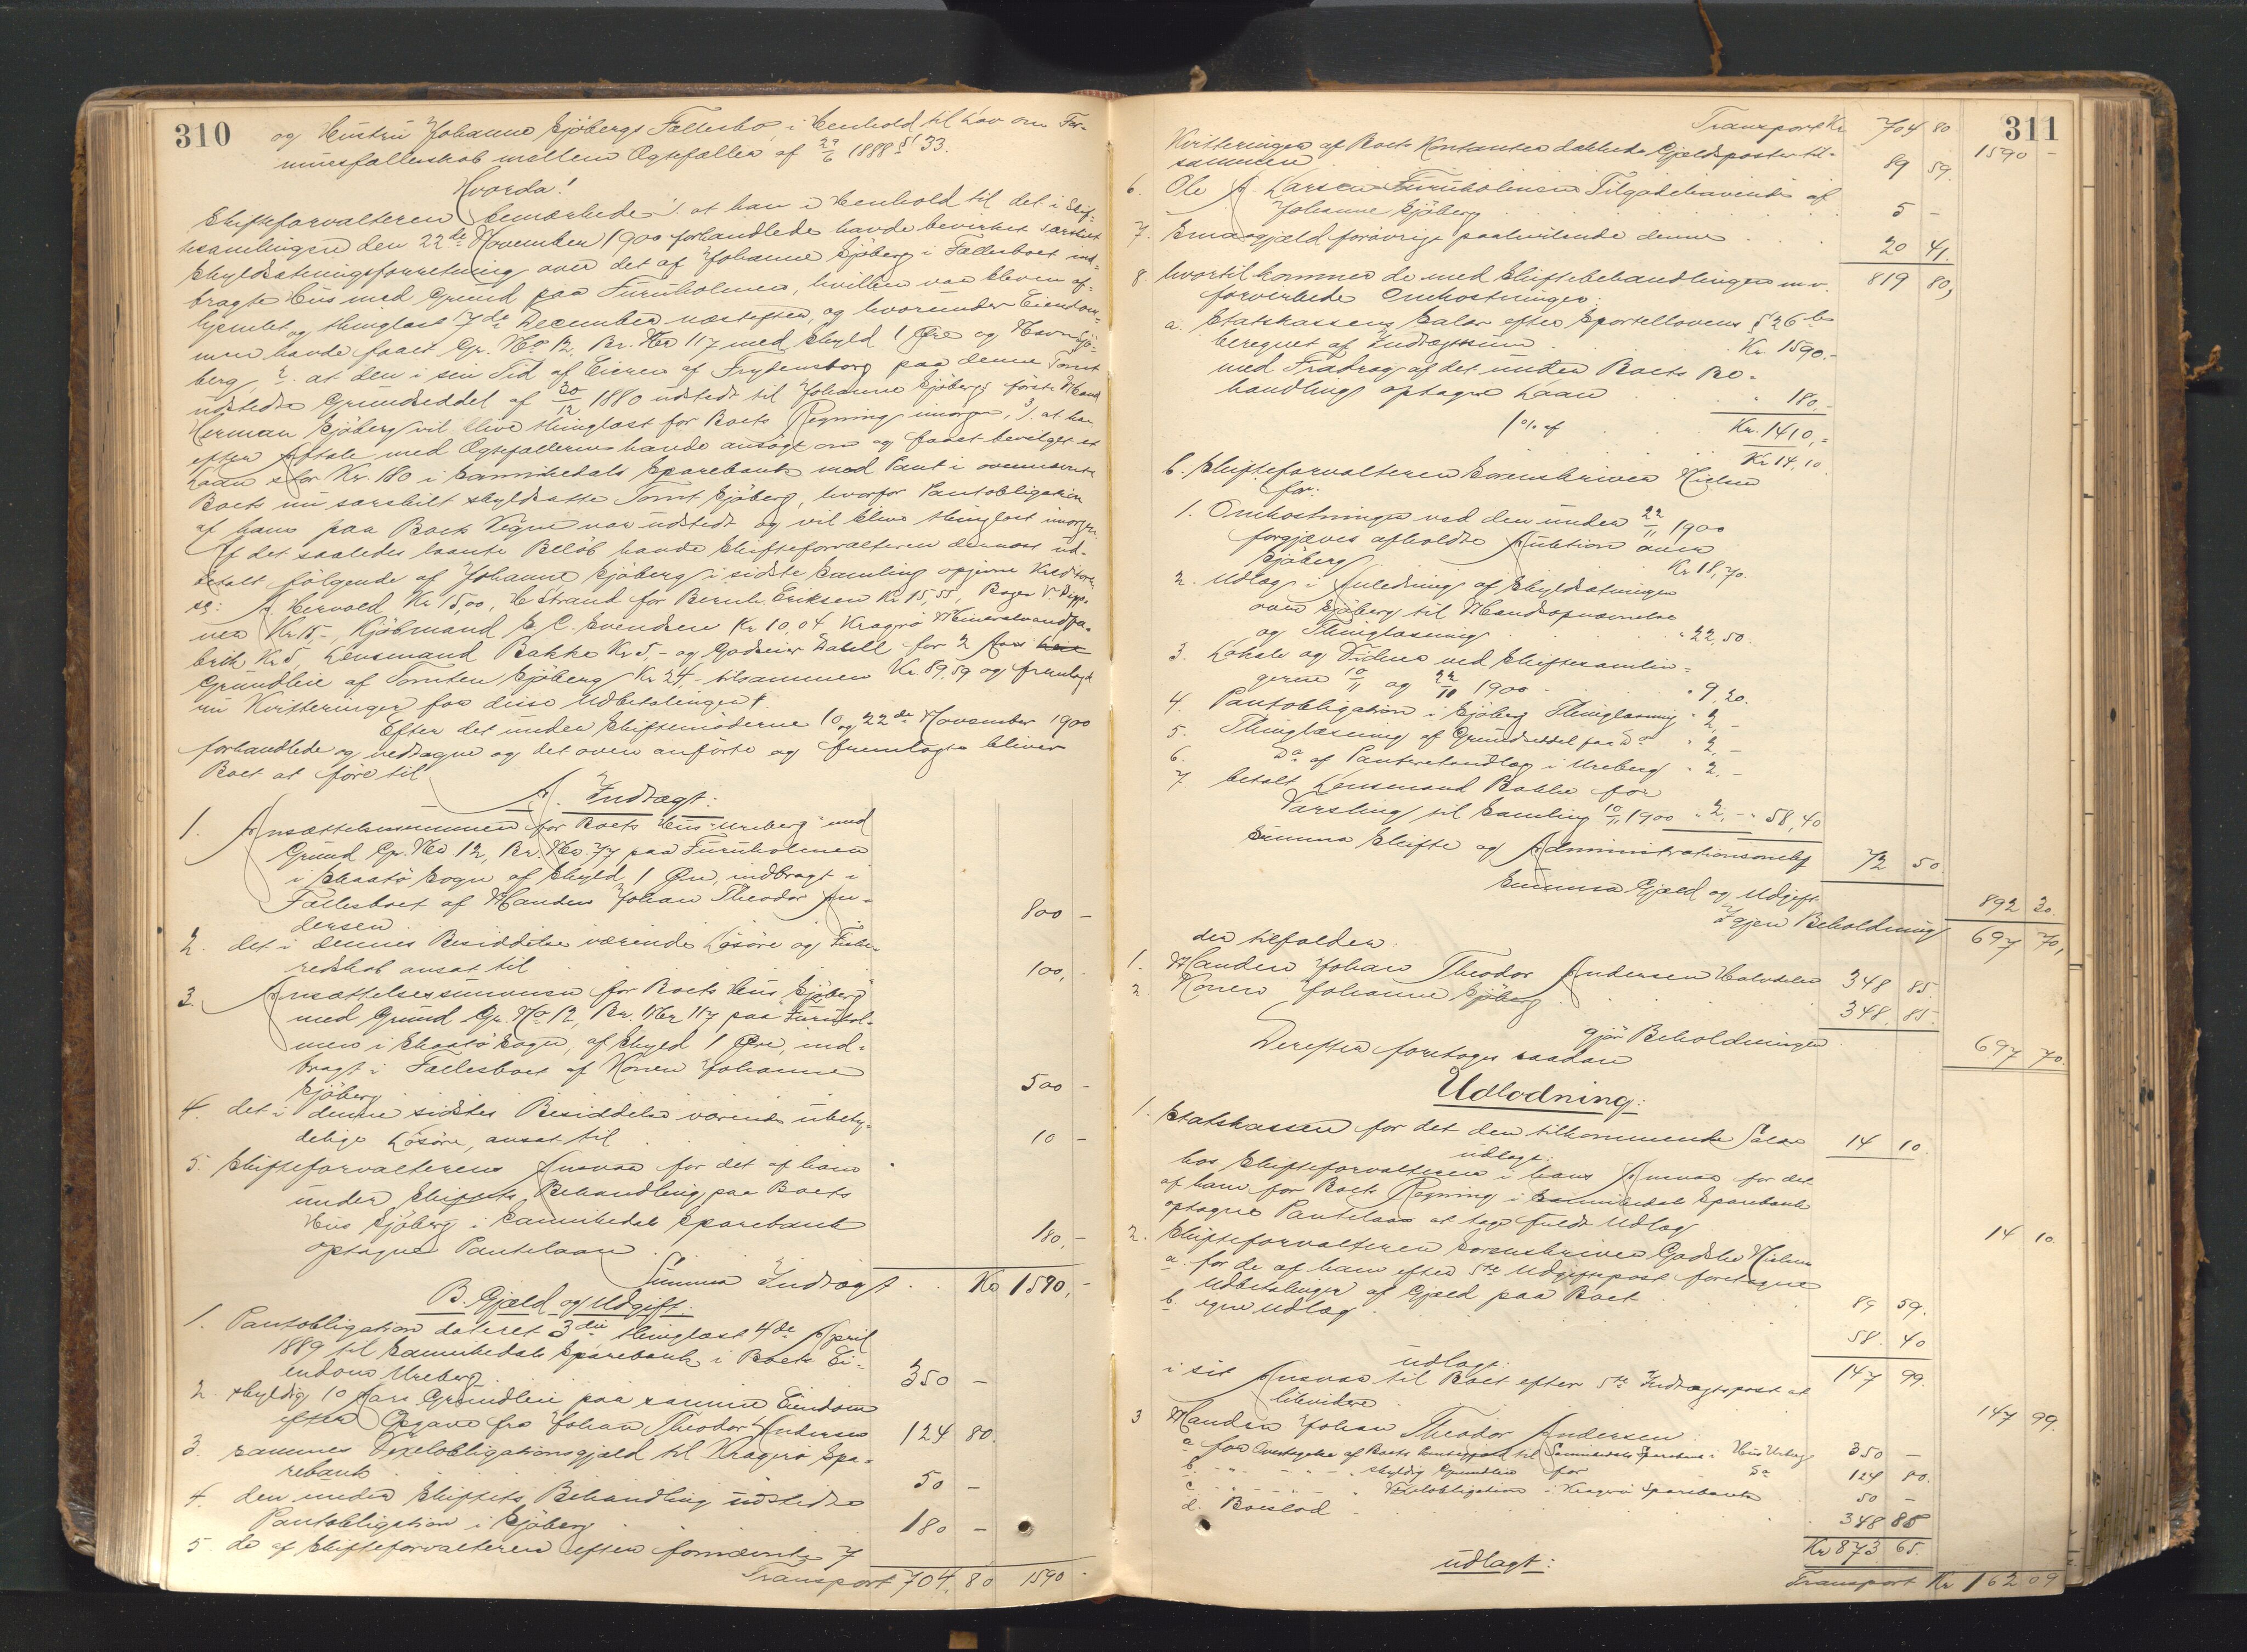 310
og Hustru Johanne Sjöbergs Fællesbo, i Henhold til Lov om For-
muesfælleskab mellem Ægtefæller af 29/6 1888 § 33.
Hvorda!
Skifteforvalteren bemærkede 1. at han i Henhold til det i Skif-
tesamlingen den 22de November 1900 forhandlede havde bevirket særskilt
Skyldsætningsforretning over det af Johanne Sjöberg i Fællesboet ind-
bragte Hus med Grund paa Furuholmen, hvilken var bleven af-
hjemlet og thinglæst 7de December næstefter, og hvorunder Eiendom-
men havde faaet Gr. No 12, Br. No 117 med Skyld 1 Øre og Navn Sjö-
berg, 2. at den i sin Tid af Eieren af Frydensborg paa denne Tomt
udstedte Grundseddel af 30/12 1880 udstedt til Johanne Sjöbergs förste Mand
Herman Sjöberg vil blive thinglæst for Boets Regning imorgen, 3. at han
efter Aftale med Ægtefællerne havde ansøgt om og faaet bevilget et
Laan stor Kr. 180 i Sannikedals Sparebank mod Pant i ovennævnte
Boets nu særskilt skyldsatte Tomt Sjöberg, hvorfor Pantobligation
af ham paa Boets Vegne var udstedt og vil blive thinglæst imorgen.
Af det saaledes laante Belöb havde Skifteforvalteren dernæst ud-
betalt fölgende af Johanne Sjöberg i sidste Samling opgivne Kreditore
se: A. Hersvold Kr 15,00, H Strand for Bernh. Eriksen Kr 15,55, Bager V.
nes Kr. 15 -, Kjöbmand S. C. Svendsen Kr 10,04 Kragerö Mineralvandfa-
brik Kr 5, Lensmand Bakke Kr 5 - og Godseier Datell for 2 Aars
Grundleie af Tomten Sjöberg Kr 24,- tilsammen Kr. 89,59 og fremlagde
nu Kvitteringer for disse Udbetalinger.
Efter det under Skiftemöderne 10 og 22de November 1900
forhandlede og vedtagne og det oven anförte og fremlagte bliver
Boet at före til
A. Indtægt:
1. Ansættelsessummen for Boets Hus "Ureberg" med
Grund Gr. No 12, Br. No 77 paa Furuholmen
i Skaatö Sogn af Skyld 1 Öre, indbragt i
Fællesboet af Manden Johan Theodor An-
dersen 800 -
2. det i dennes Besiddelse værende Lösöre og Fiske-
redskab ansat til 100, -
3. Ansættelsessummen for Boets Hus "Sjöberg"
med Grund Gr. No 12, Br. No 117 paa Furuhol-
men i Skaatö Sogn, af Skyld 1 Öre, ind-
bragt i Fællesboet af Konen Johanne
Sjöberg 500 -
4. det i denne sidstes Besiddelse værende ubety-
delige Lösöre, ansat til 10 -
5. Skifteforvalterens Ansvar for det af ham
under Skiftets Behandling paa Boets
Hus Sjöberg i Sannikedals Sparebank
optagne Pantelaan 180, -
Summa Indtægt Kr 1590, -
B. Gjæld og Udgift.
1. Pantobligation dateret 3die thinglæst 4de April
1889 til Sannikedals Sparebank i Boets Ei-
endom Ureberg 350 -
2. skyldig 10 Aars Grundleie paa samme Eiendom
efter Opgave fra Johan Theodor Andersen 124 80.
3. sammes Vexelobligationsgjæld til Kragerö Spa-
rebank 50 -
4. den under Skiftets Behandling udstedte
Pantobligation i Sjöberg 180 -
5. de af Skifteforvalteren efter fornævnte 7
Transport 704, 80 1590 -
311
Transport Kr 704 80 1590 -
Kvitteringer af Boets Kontanter dækkede Gjældsposter til-
sammen 89 59.
6. Ole A. Larsen Furuholmen Tilgodehavende af
Johanne Sjöberg 5 -
7. Smaagjæld forövrigt paahvilende denne 20 41.
819 80,
8. hvortil kommer de med Skiftebehandlingen m. v.
forvirkede Omkostninger:
a. Statskassens Salær efter Sportellovens § 26 b
beregnet af Indtægtssum Kr. 1590.-
med Fradrag af det under Boets Be-
handling optagne Laan " 180,-
1 % af Kr. 1410,=
Kr 14,10.
b. Skifteforvalteren Sorenskriver Nielsen
for:
1. Omkostninger ved den under 22/11 1900
forgjæves afholdte Auktion over
Sjöberg Kr 18,70.
2. Udlæg i Anledning af Skyldsætningen
over Sjöberg til Mandsopnævnelse
og Thinglæsning " 22,50.
3. Lokale og Vidner ved Skiftesamlin-
gerne 10/11 og 22/11 1900 " 9,20.
4. Pantobligation i Sjöberg Thinglæsning " 2,-
5. Thinglæsning af Grundseddel paa Do " 2,-
6. Do af Panteretsudlæg i Ureberg " 2,-
7 betalt Lensmand Bakke for
Varsling til Samling 10/11 1900 " 2,- " 58,40
Summa Skifte og Administrationsomkg 72 50.
Summa Gjæld og Udgift 892 30.
Igjen Beholdning 697 70,
der tilfalder:
1. Manden Johan Theodor Andersen Halvdelen 348 85.
2. Konen Johanne Sjöberg 348, 85.
gjör Beholdningen 697 70.
Derefter foretoges saadan
Udlodning:
1. Statskassen for det den tilkommende Salær 14 10.
udlagt:
hos Skifteforvalteren i hans Ansvar for det
af ham for Boets Regning i Sannikedals Sparebank
optagne Pantelaan at tage fuldt Udlæg 14 10.
2. Skifteforvalteren Sorenskriver Godske Nielsen
a. for de af ham efter 5te Udgiftspost foretagne
Udbetalinger af Gjæld paa Boet 89 59.
b. egne Udlæg 58. 40
147 99.
udlagt:
i sit Ansvar til Boet efter 5te Indtægtspost at
likvidere 147 99.
3 Manden Johan Theodor Andersen:
a. for Overtagelse af Boets Pantegjæld til Sannikedals Sparebank i Hus Ureberg 350 -
b. - " - - " - " skyldig Grundleie for Do 124 80.
c. - " - - " - " Vexelobligation i Kragerö Sparebank 50 -
d. Boeslod 348 85
Kr 873 65.
udlagt:
Transport Kr 162 09